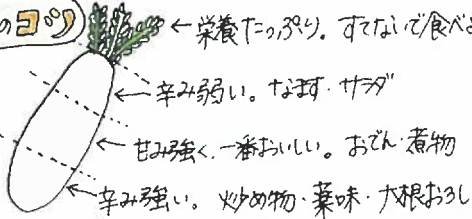 のコツ
栄養たっぷり。すてないで食べ
辛み弱い。なます・サラダ
甘み強く、一番おいしい。おでん・煮物
辛み強い。炒め物・薬味・大根おろし